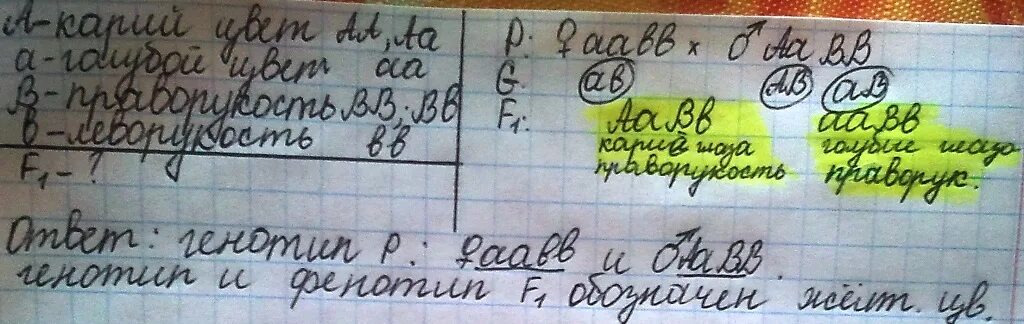 А-карий цвет АА, Аа
а-голубой цвет аа
В-праворукость ВВ; Вв
в-леворукость вв
F₁-?
P: ♀ аавв × ♂ АаВВ
G: ав АВ аВ
F₁: АаВв ааВв
карий глаза голубые глаза
праворукость праворук.
Ответ: генотип P: ♀аавв и ♂АаВВ.
генотип и фенотип F₁ обозначен жёлт. цв.